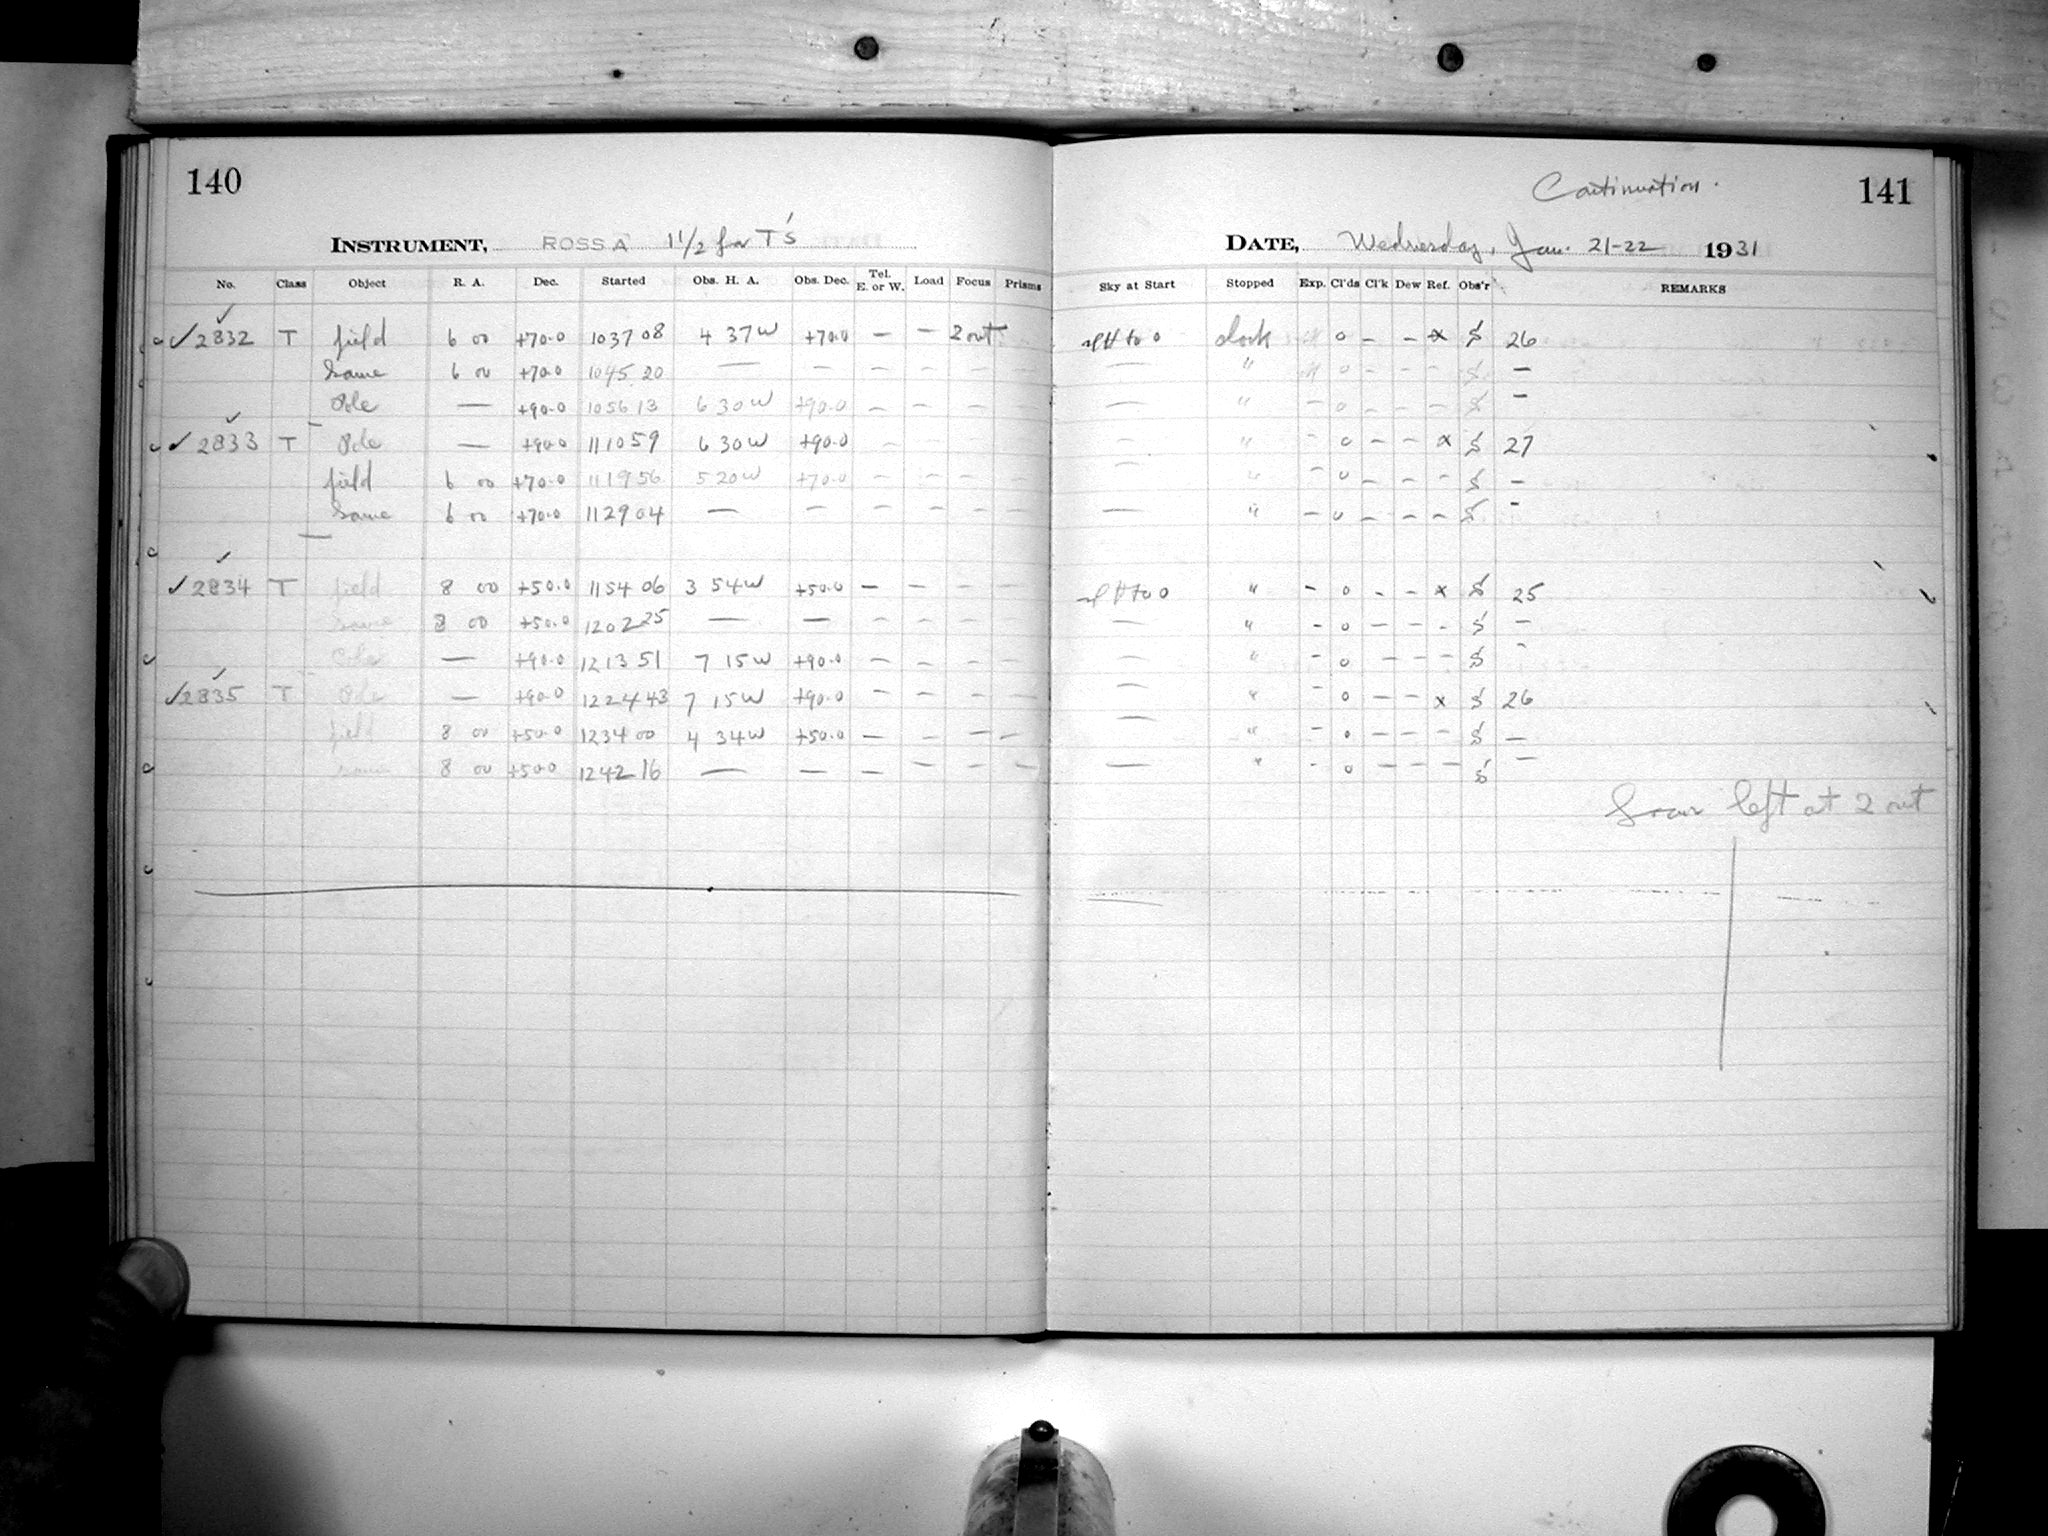 140
INSTRUMENT, ROSS A 1 1/2 for T's
No. Class Object R. A. Dec. Started Obs. H. A. Obs. Dec. Tel. E. or W. Load Focus Prisms
✓2832 T field 6 00 +70.0 10 37 08 4 37 W +70.0 — — 2 out
Same 6 00 +70.0 10 45 20 — — — — — —
Pole — +90.0 10 56 13 6 30 W +90.0 — — — —
✓2833 T Pole — +90.0 11 10 59 6 30 W +90.0 —
field 6 00 +70.0 11 19 56 5 20 W +70.0 — — — —
Same 6 00 +70.0 11 29 04 — — — — — —
✓2834 T field 8 00 +50.0 11 54 06 3 54 W +50.0 — — — —
Same 8 00 +50.0 12 02 25 — — — — — —
Pole — +90.0 12 13 51 7 15 W +90.0 — — — —
✓2835 T Pole — +90.0 12 24 43 7 15 W +90.0 — — — —
field 8 00 +50.0 12 34 00 4 34 W +50.0 — — — —
Same 8 00 +50.0 12 42 16 — — — — — —
Continuation.
141
DATE, Wednesday, Jan. 21-22 1931
Sky at Start Stopped Exp. Cl'ds Cl'k Dew Ref. Obs'r REMARKS
to 0 clock 0 — — x S 26
— " 0 — — — S —
— " — 0 — — — S —
— " — 0 — — x S 27
— " — 0 — — — S —
— " — 0 — — — S —
to 0 " — 0 — — x S 25
— " — 0 — — — S —
— " — 0 — — — S —
— " — 0 — — x S 26
— " — 0 — — — S —
— " — 0 — — — S —
left at 2 out